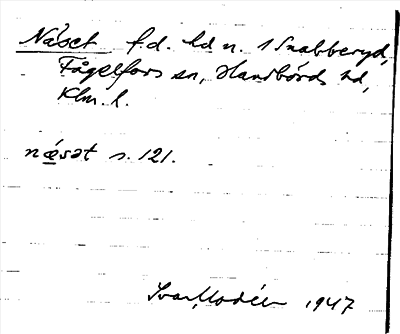 Näset f.d. ld n. 1 Snabberyd,
Fågelfors sn, Handbörds hd,
Klm. l.
næsat s. 121.
Ivar Modéer 1947